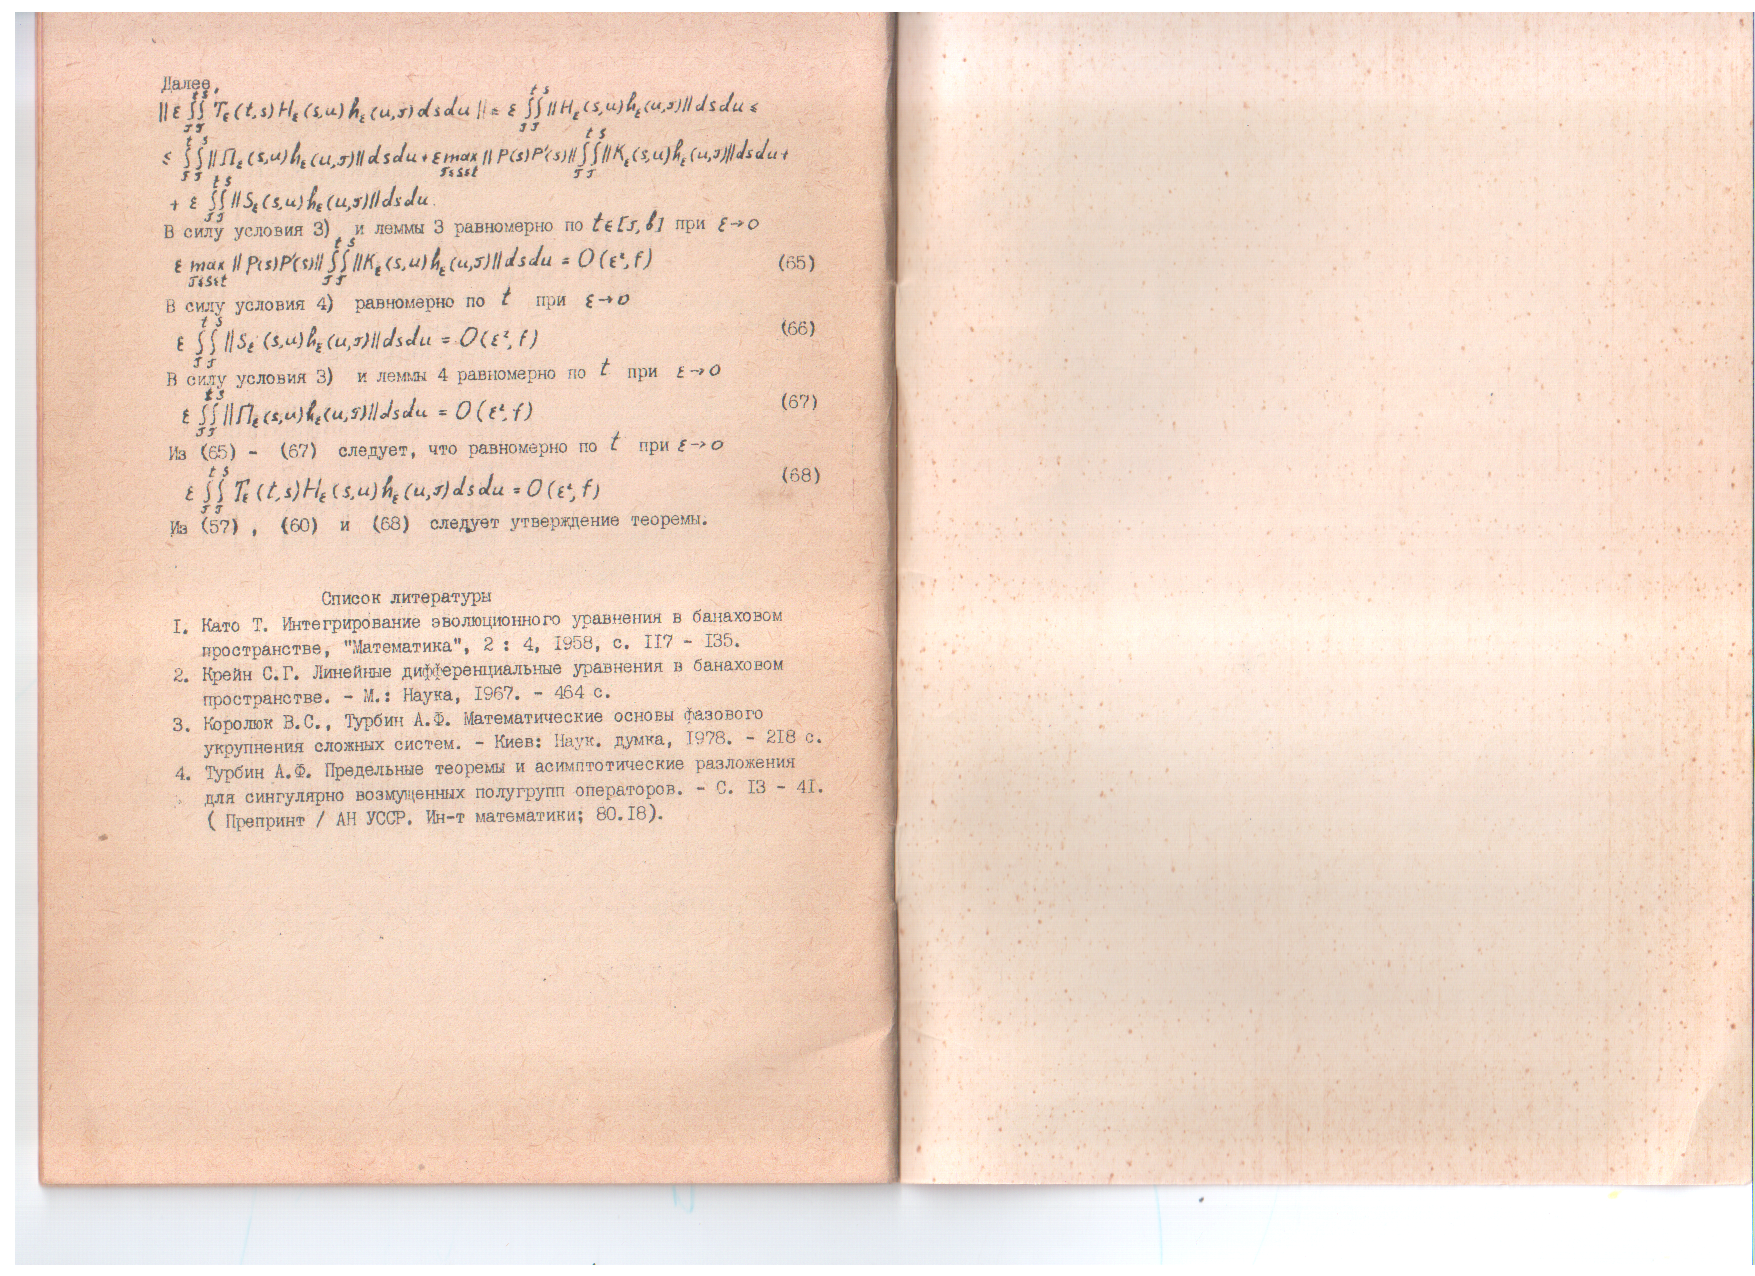 Далее,
|| ε ∫∫ T_ε(t,s) H_ε(s,u) h_ε(u,τ) ds du || ≤ ε ∫∫ || H_ε(s,u) h_ε(u,τ) || ds du ≤
≤ ∫∫ || Π_ε(s,u) h_ε(u,τ) || ds du + ε max_{τ≤s≤t} || P(s)P'(s) || ∫∫ || K_ε(s,u) h_ε(u,τ) || ds du +
+ ε ∫∫ || S_ε(s,u) h_ε(u,τ) || ds du.
В силу условия 3) и леммы 3 равномерно по t∈[τ, b] при ε→0
ε max_{τ≤s≤t} || P(s)P'(s) || ∫∫ || K_ε(s,u) h_ε(u,τ) || ds du = O(ε², f) (65)
В силу условия 4) равномерно по t при ε→0
ε ∫∫ || S_ε(s,u) h_ε(u,τ) || ds du = O(ε², f) (66)
В силу условия 3) и леммы 4 равномерно по t при ε→0
ε ∫∫ || Π_ε(s,u) h_ε(u,τ) || ds du = O(ε², f) (67)
Из (65) - (67) следует, что равномерно по t при ε→0
ε ∫∫ T_ε(t,s) H_ε(s,u) h_ε(u,τ) ds du = O(ε², f) (68)
Из (57), (60) и (68) следует утверждение теоремы.
Список литературы
I. Като Т. Интегрирование эволюционного уравнения в банаховом
пространстве, "Математика", 2 : 4, I958, с. II7 - I35.
2. Крейн С.Г. Линейные дифференциальные уравнения в банаховом
пространстве. - М.: Наука, I967. - 464 с.
3. Королюк В.С., Турбин А.Ф. Математические основы фазового
укрупнения сложных систем. - Киев: Наук. думка, I978. - 2I8 с.
4. Турбин А.Ф. Предельные теоремы и асимптотические разложения
для сингулярно возмущенных полугрупп операторов. - С. I3 - 4I.
( Препринт / АН УССР. Ин-т математики; 80.I8).